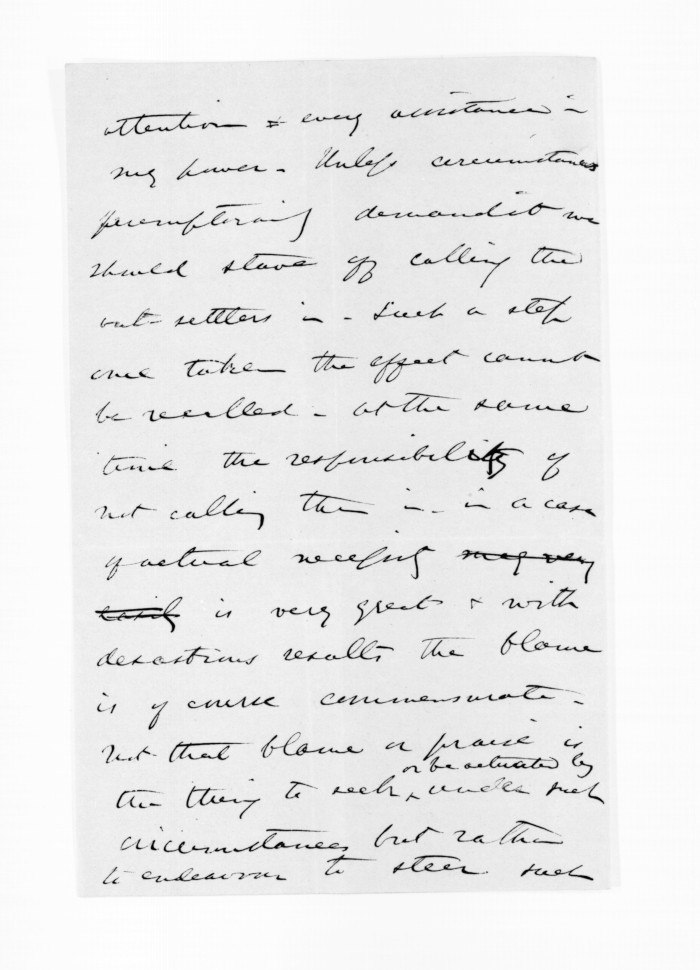 attention & every assistance in
my power - Unless circumstances
peremptorily demand it we
should stave off calling the
out-settlers in - Such a step
once taken the effect cannot
be recalled - at the same
time the responsibility of
not calling them in - in a case
of actual necessity may very
easily is very great & with
desastrous results the blame
is of course commensurate -
not that blame or praise is
or be actuated by
the thing to seek under such
circumstances but rather
to endeavour to steer such